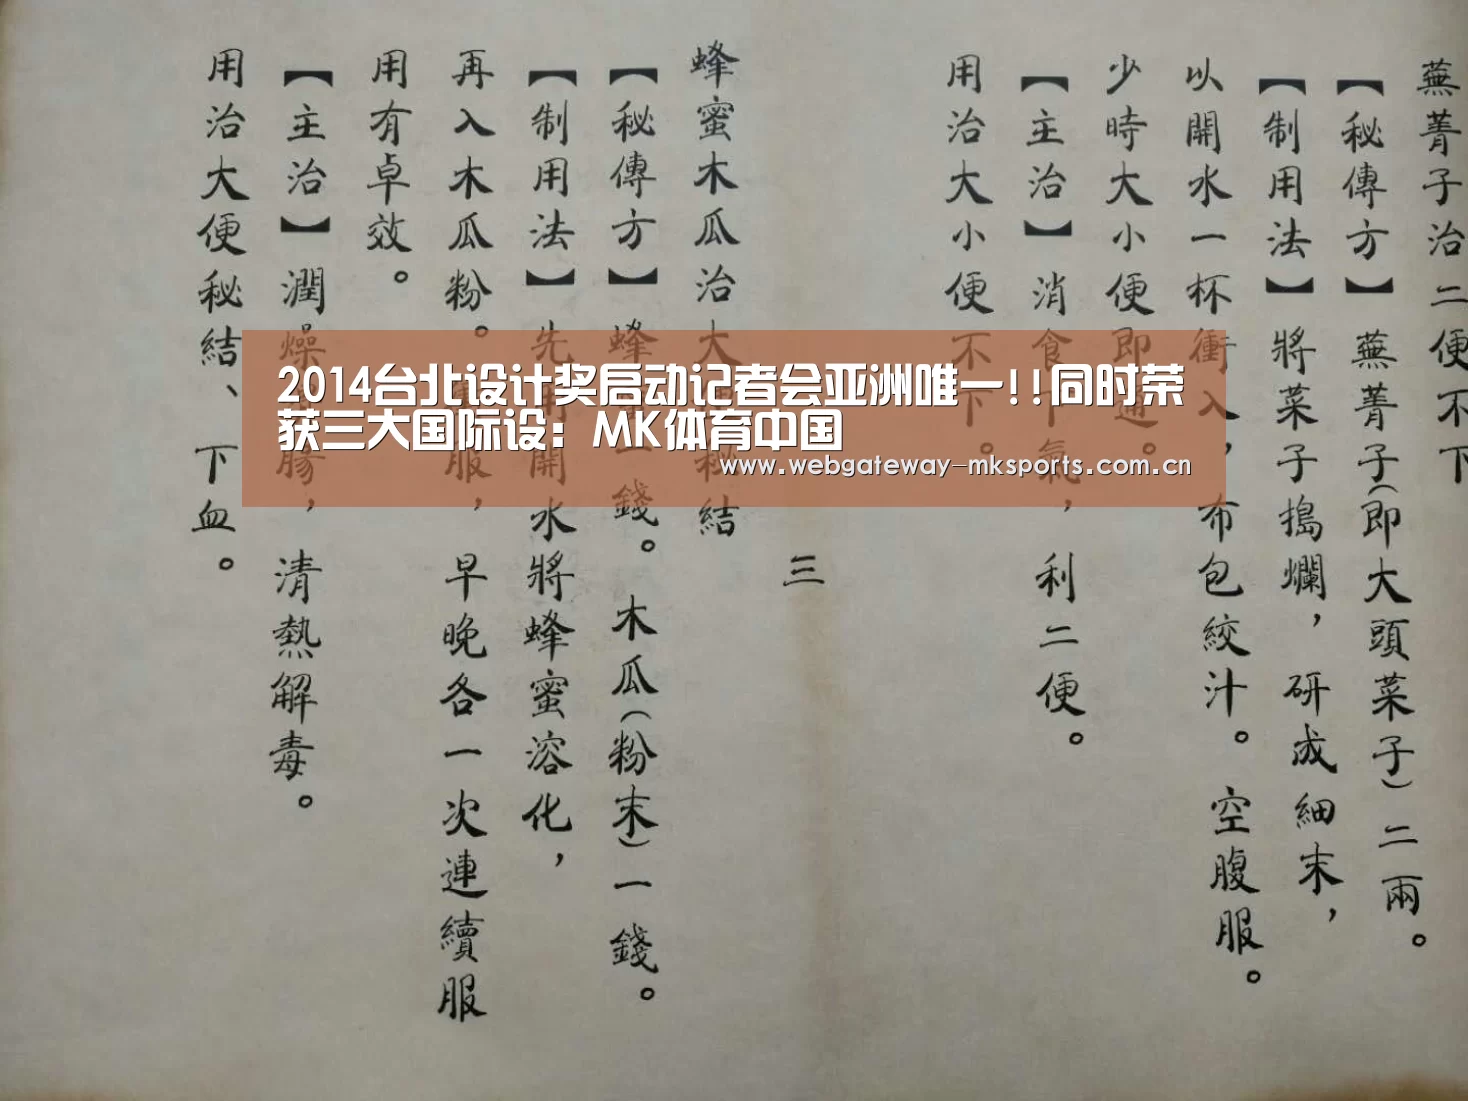 蕪菁子治二便不下
【秘傳方】蕪菁子（即大頭菜子）二兩。
【制用法】將菜子搗爛，研成細末，
以開水一杯衝入，布包絞汁。空腹服。
少時大小便即通。
【主治】消食下氣，利二便。
用治大小便不下。
三
蜂蜜木瓜治大便秘結
【秘傳方】蜂蜜一錢。木瓜（粉末）一錢。
【制用法】先用開水將蜂蜜溶化，
再入木瓜粉。服，早晚各一次連續服
用有卓效。
【主治】潤燥腸，清熱解毒。
用治大便秘結、下血。
2014台北设计奖启动记者会亚洲唯一!!同时荣
获三大国际设：MK体育中国
www.webgateway-mksports.com.cn